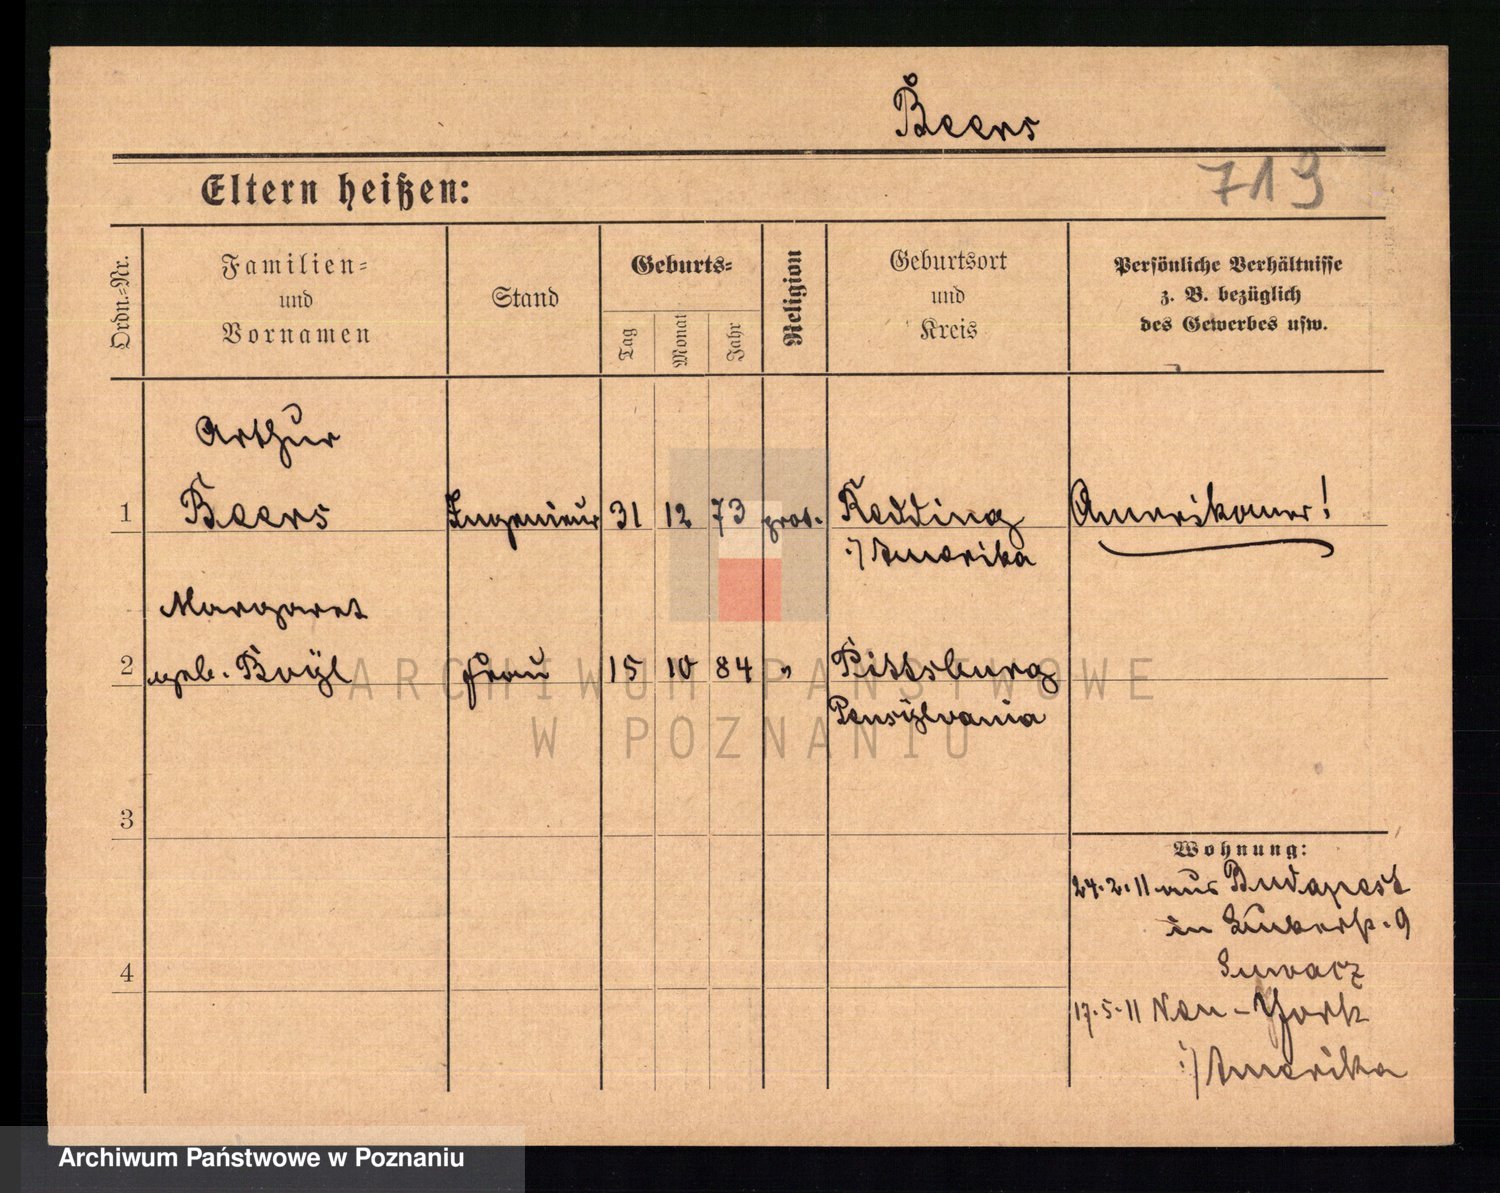 Beers
Eltern heißen:
719
Ordn.=Nr.
Familien=
und
Vornamen
Stand
Geburts=
Tag
Monat
Jahr
Religion
Geburtsort
und
Kreis
Persönliche Verhältnisse
z. B. bezüglich
des Gewerbes usw.
Arthur
1 Beers Ingenieur 31 12 73 prot. Redding Amerikaner!
i/Amerika
Margaret
2 geb. Boyl Frau 15 10 84 " Pittsburg
Pensylvania
3
Wohnung:
24.2.11 aus Budapest
in 9
4
17.5.11 New-York
i/Amerika
ARCHIWUM PAŃSTWOWE
W POZNANIU
Archiwum Państwowe w Poznaniu